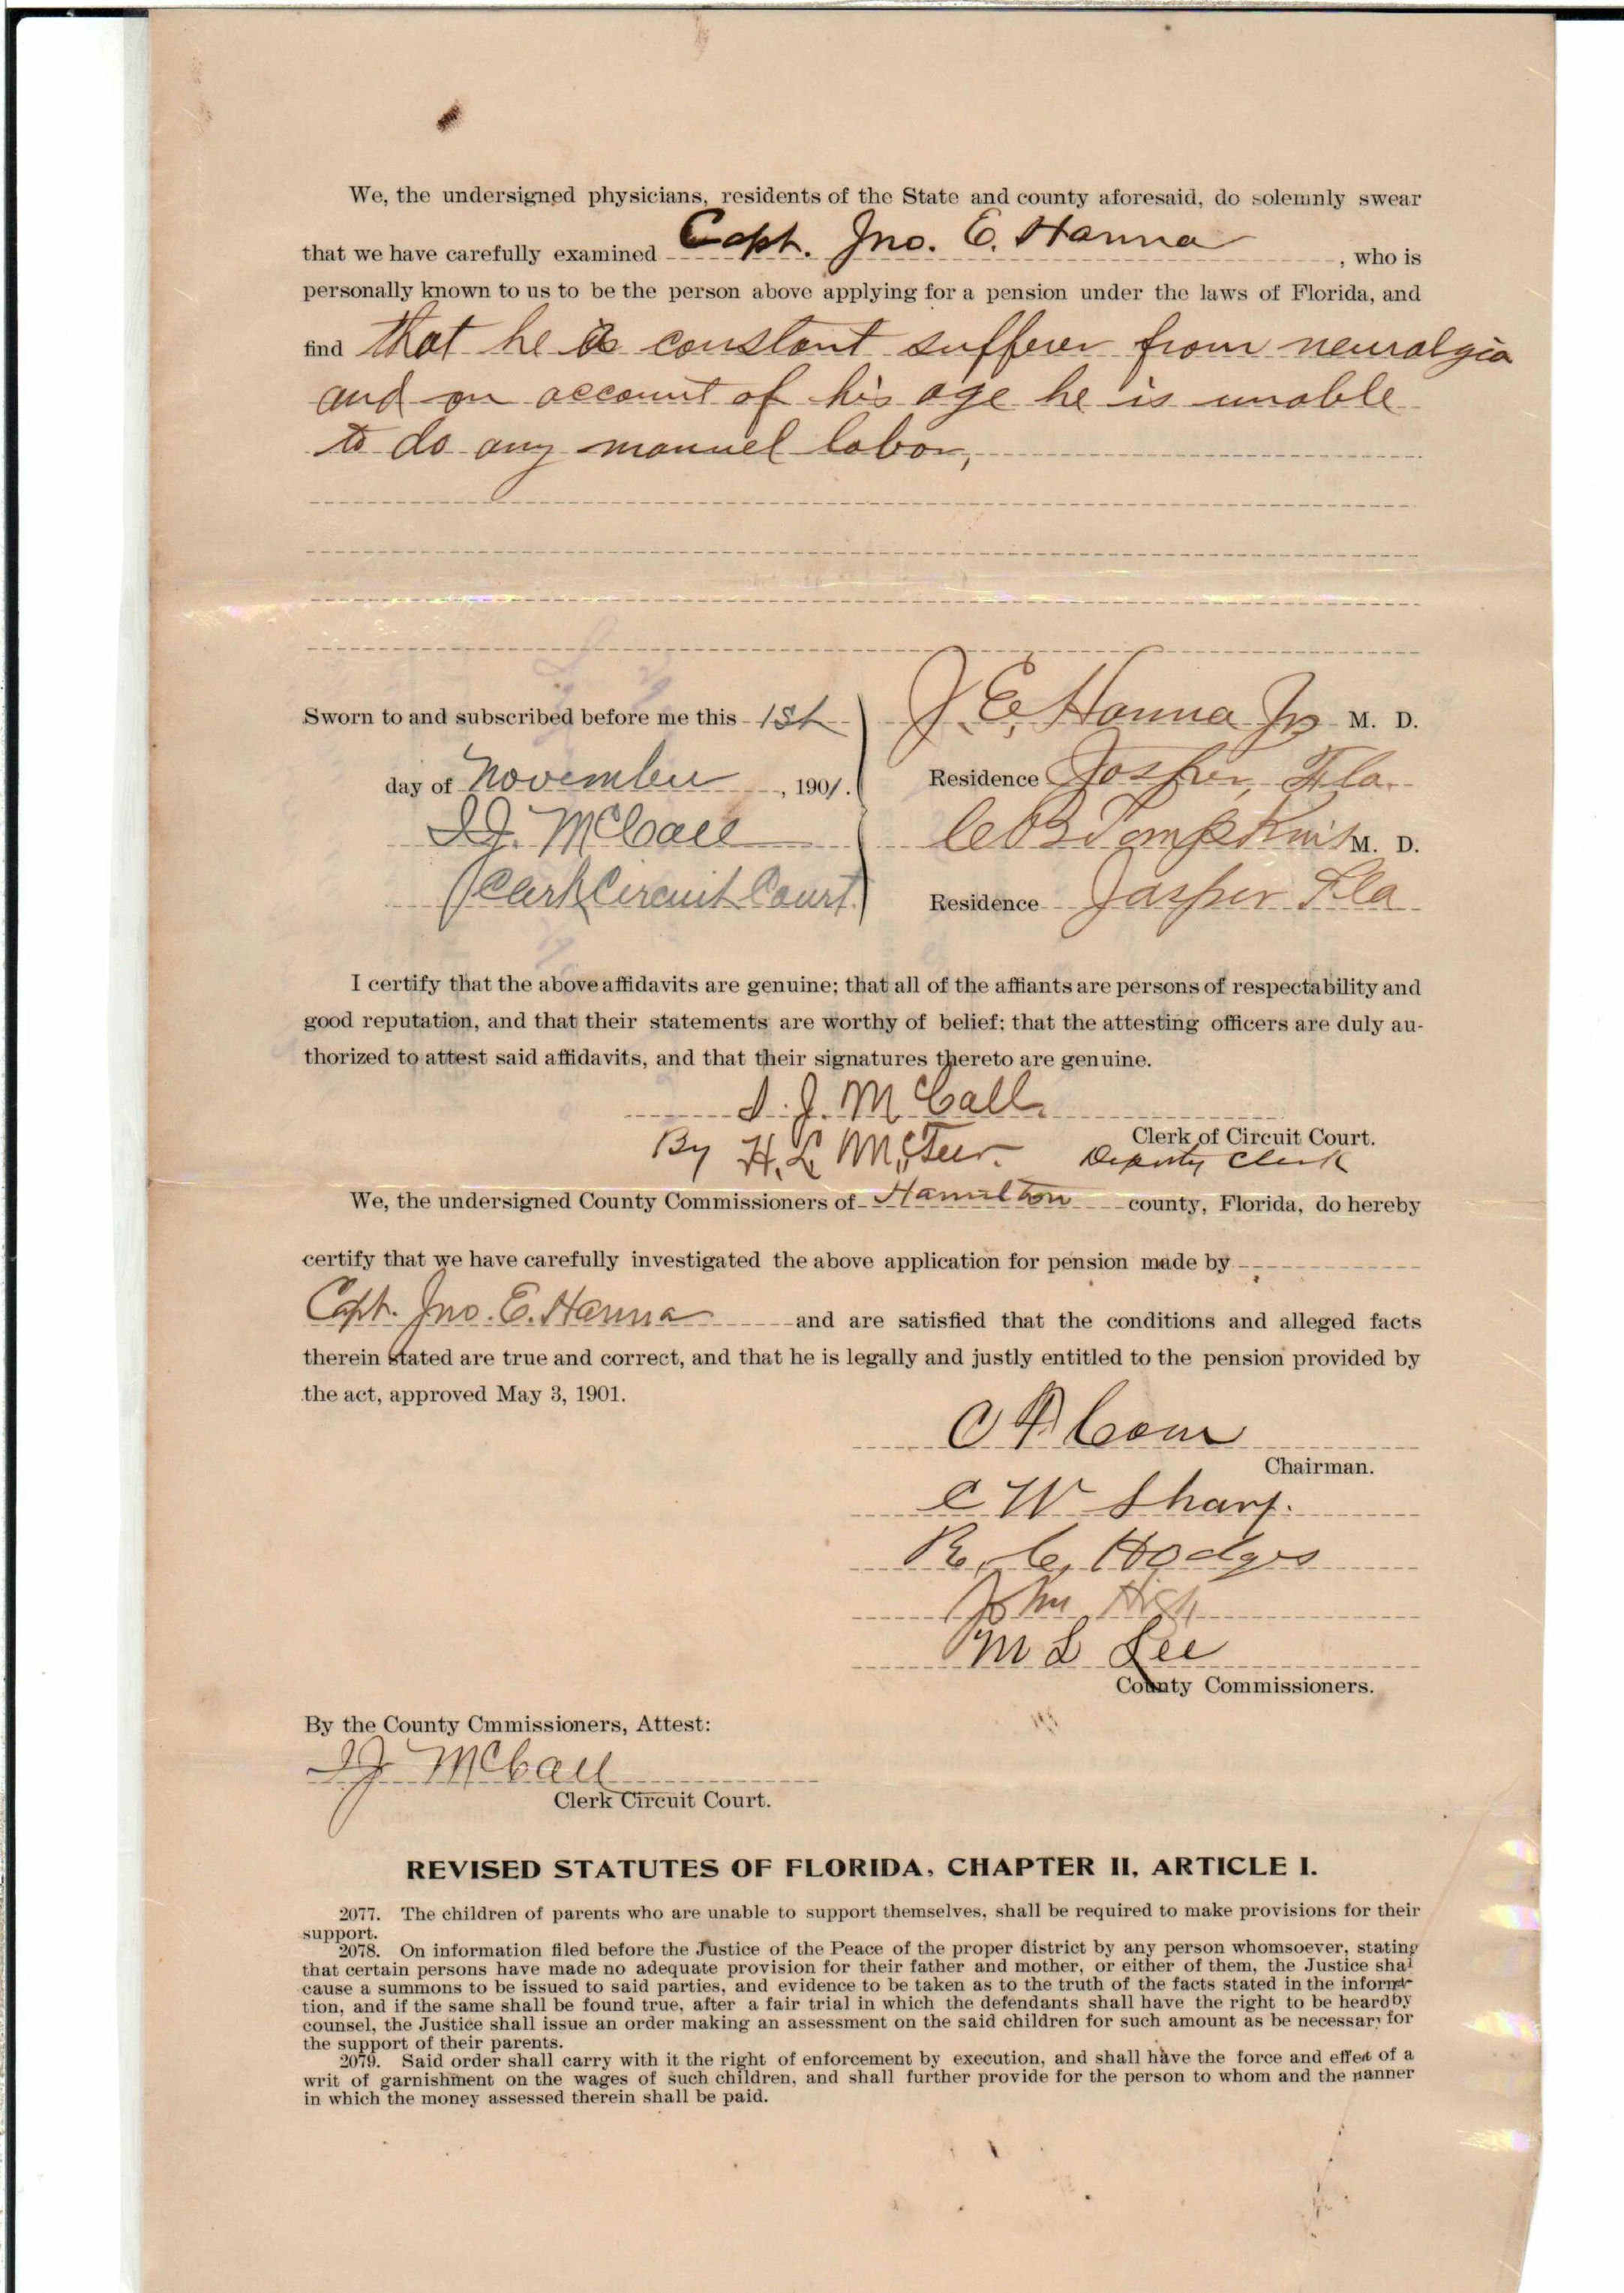 We, the undersigned physicians, residents of the State and county aforesaid, do solemnly swear
that we have carefully examined Capt. Jno. E. Hanna, who is
personally known to us to be the person above applying for a pension under the laws of Florida, and
find that he is constant sufferer from neuralgia
and on account of his age he is unable
to do any manuel labor,
Sworn to and subscribed before me this 1st
J. E. Hanna Jr M. D.
day of November, 1901.
Residence Jasper, Fla.
I J. McCall
C B Tompkins M. D.
Clerk Circuit Court
Residence Jasper Fla
I certify that the above affidavits are genuine; that all of the affiants are persons of respectability and
good reputation, and that their statements are worthy of belief; that the attesting officers are duly au-
thorized to attest said affidavits, and that their signatures thereto are genuine.
I. J. McCall
Clerk of Circuit Court.
By H. L. Deputy Clerk
We, the undersigned County Commissioners of Hamilton county, Florida, do hereby
certify that we have carefully investigated the above application for pension made by
Capt. Jno. E. Hanna and are satisfied that the conditions and alleged facts
therein stated are true and correct, and that he is legally and justly entitled to the pension provided by
the act, approved May 3, 1901.
Chairman.
C W Sharp.
R. C. Hodges
John High
M L Lee
County Commissioners.
By the County Cmmissioners, Attest:
I J McCall
Clerk Circuit Court.
REVISED STATUTES OF FLORIDA, CHAPTER II, ARTICLE I.
2077. The children of parents who are unable to support themselves, shall be required to make provisions for their
support.
2078. On information filed before the Justice of the Peace of the proper district by any person whomsoever, stating
that certain persons have made no adequate provision for their father and mother, or either of them, the Justice shal
cause a summons to be issued to said parties, and evidence to be taken as to the truth of the facts stated in the informa-
tion, and if the same shall be found true, after a fair trial in which the defendants shall have the right to be heard by
counsel, the Justice shall issue an order making an assessment on the said children for such amount as be necessary for
the support of their parents.
2079. Said order shall carry with it the right of enforcement by execution, and shall have the force and effect of a
writ of garnishment on the wages of such children, and shall further provide for the person to whom and the manner
in which the money assessed therein shall be paid.